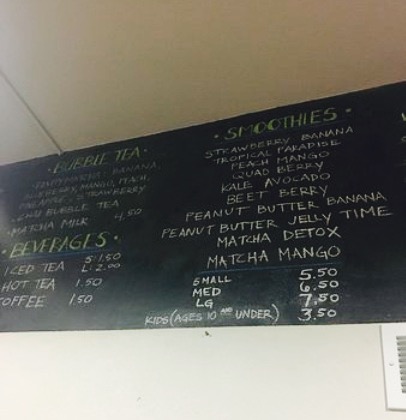 BUBBLE TEA
BANANA
BLUEBERRY, MANGO, PEACH,
PINEAPPLE, STRAWBERRY
CHAI BUBBLE TEA
MATCHA MILK 4.50
BEVERAGES
ICED TEA S: 1.50
L: 2.00
HOT TEA 1.50
COFFEE 1.50
SMOOTHIES
STRAWBERRY BANANA
TROPICAL PARADISE
PEACH MANGO
QUAD BERRY
KALE AVOCADO
BEET BERRY
PEANUT BUTTER BANANA
PEANUT BUTTER JELLY TIME
MATCHA DETOX
MATCHA MANGO
SMALL 5.50
MED 6.50
LG 7.50
KIDS (AGES 10 AND UNDER) 3.50